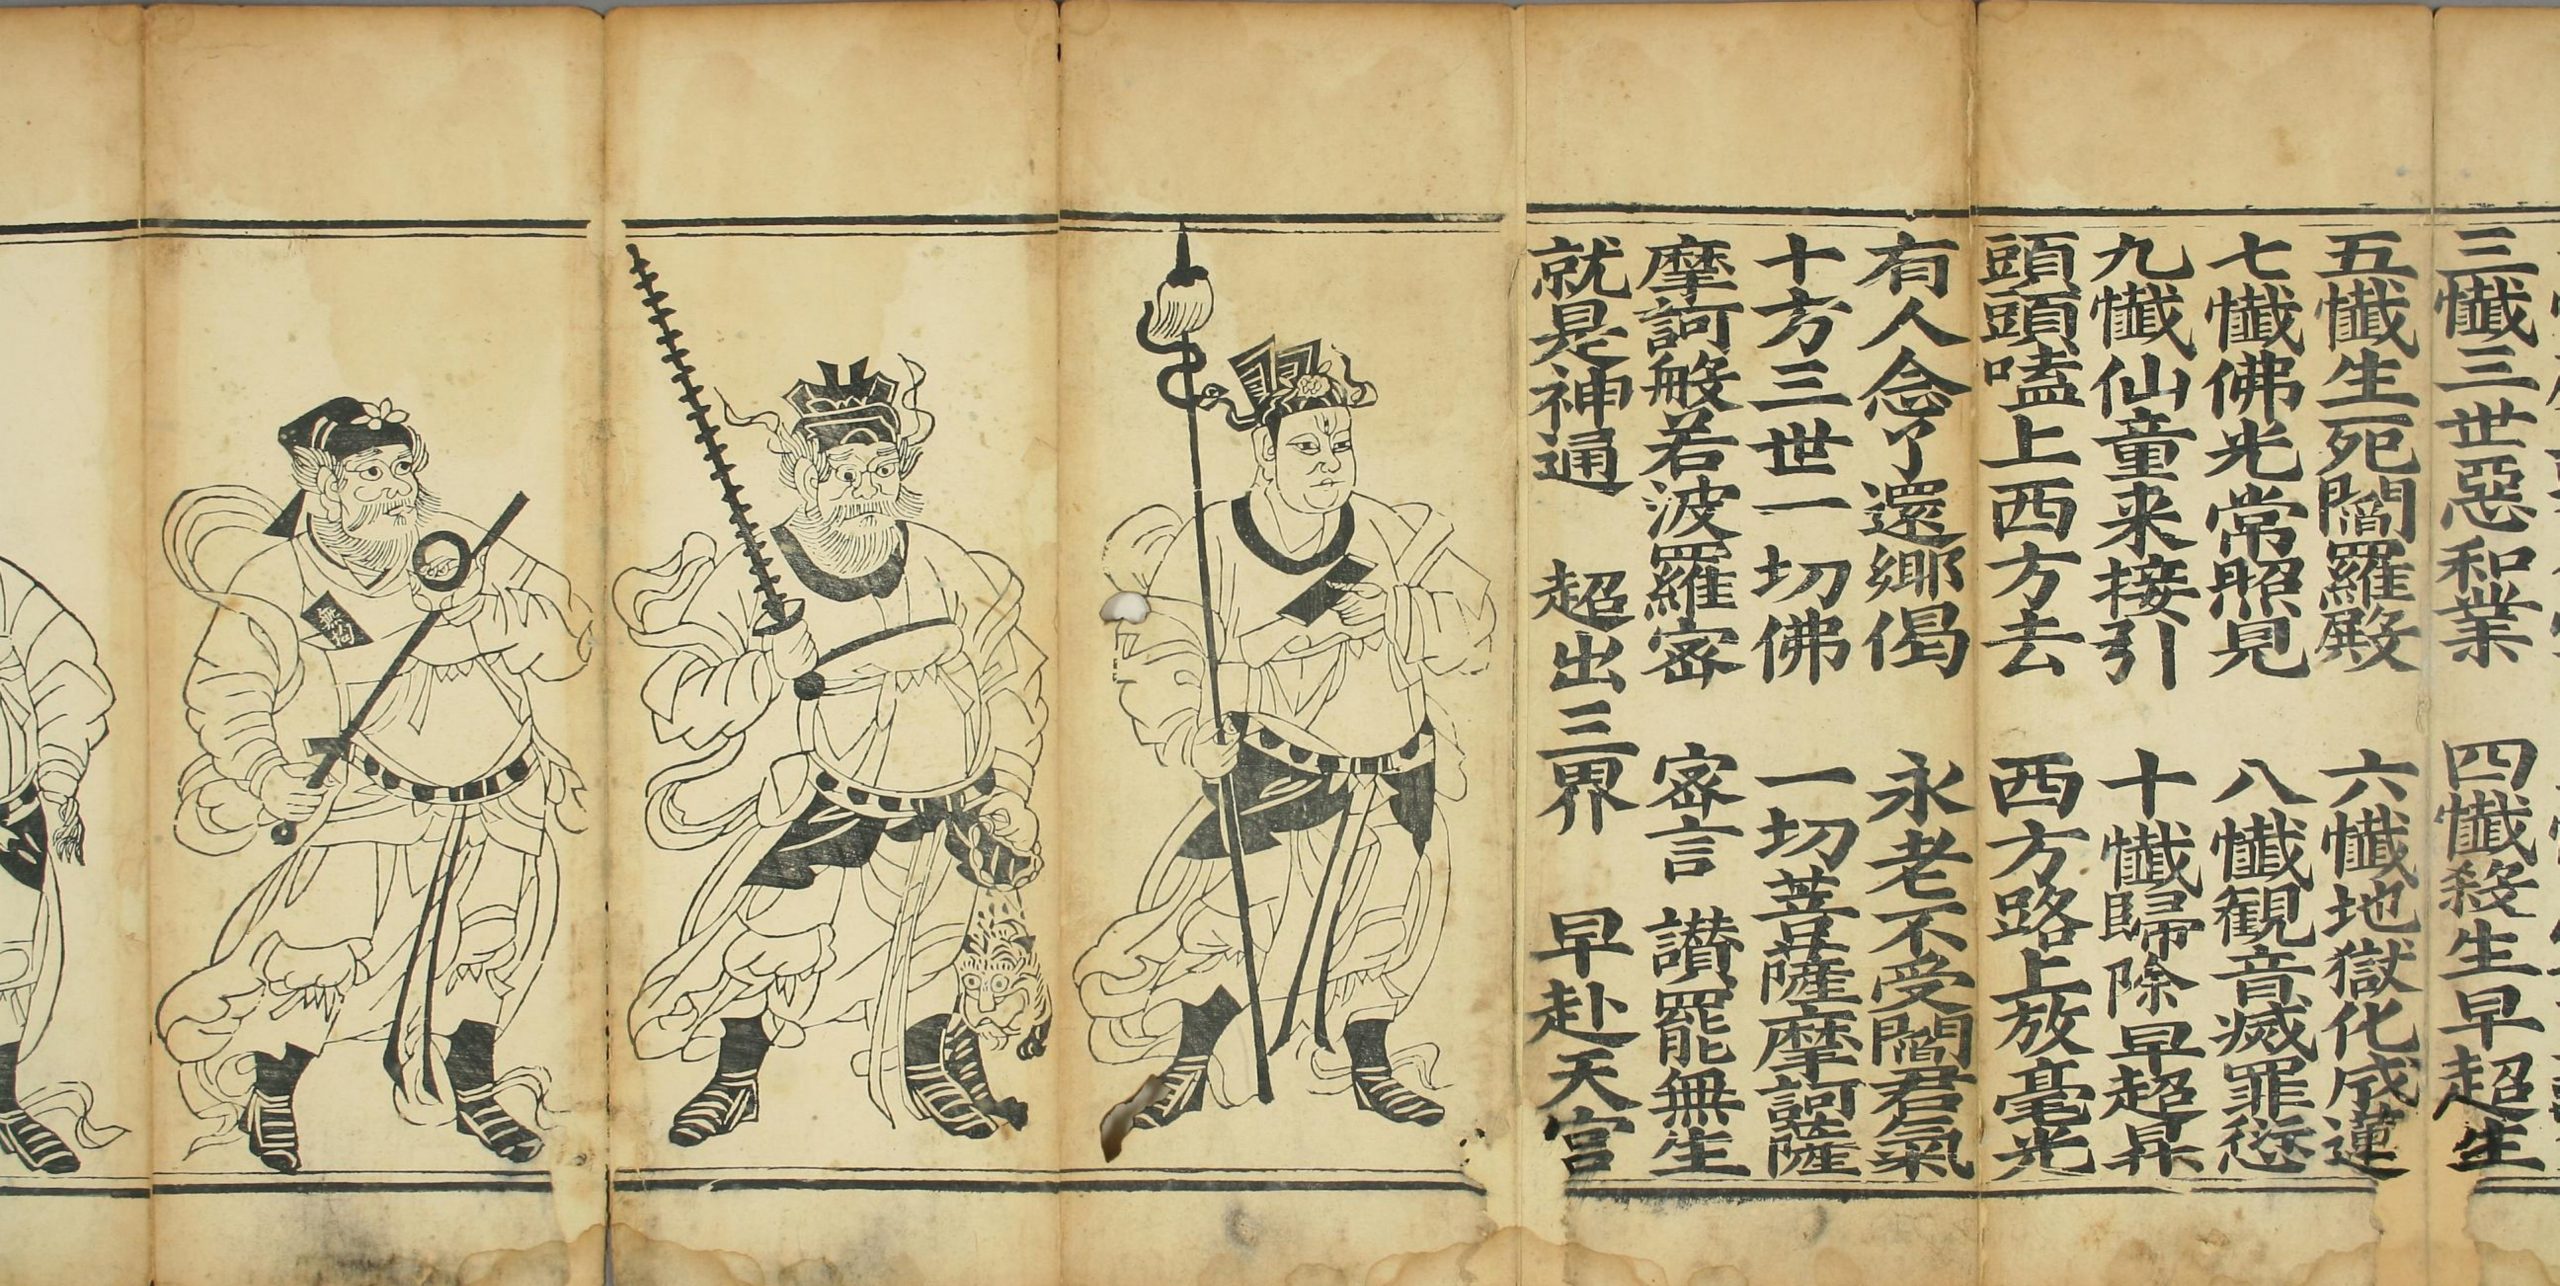 三懺三世惡和業　四懺殺生早超生
五懺生死閻羅殿　六懺地獄化成蓮
七懺佛光常照見　八懺觀音滅罪愆
九懺仙童来接引　十懺歸除早超昇
頭頭嗑上西方去　西方路上放毫光
有人念了還鄉偈　永老不受閻君氣
十方三世一切佛　一切菩薩摩訶薩
摩訶般若波羅密　密言　讃罷無生
就是神通　超出三界　早赴天宮
無拘